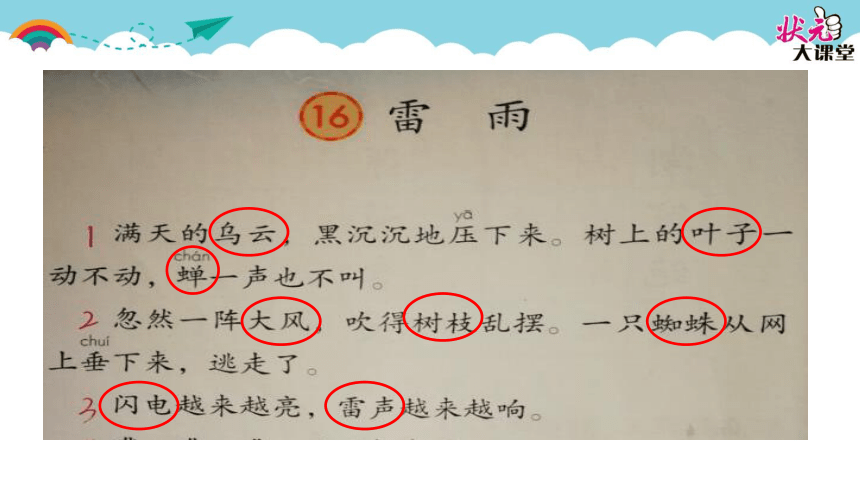 状元
大课堂
16 雷 雨
yā
1 满天的乌云，黑沉沉地压下来。树上的叶子一
chán
动不动，蝉一声也不叫。
2 忽然一阵大风，吹得树枝乱摆。一只蜘蛛从网
chuí
上垂下来，逃走了。
3 闪电越来越亮，雷声越来越响。